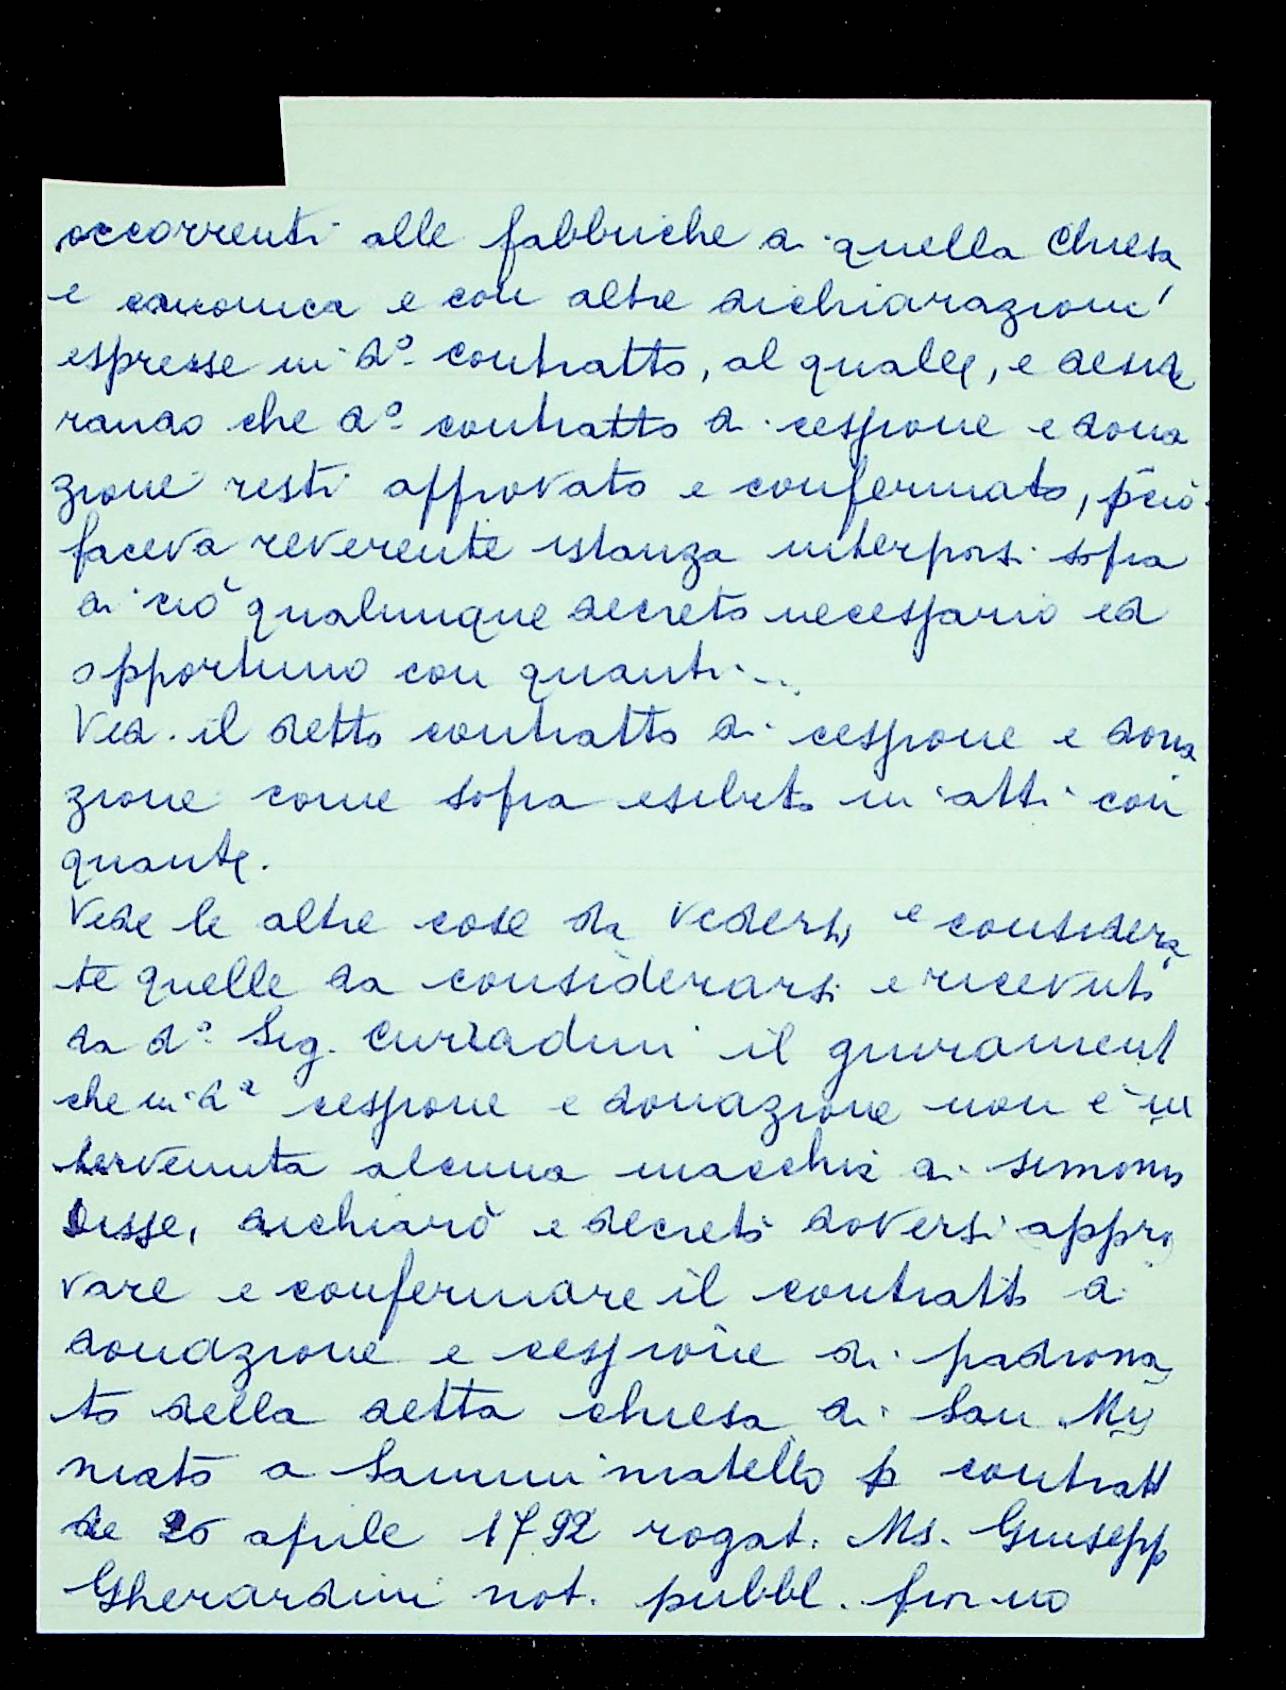 occorrenti alle fabbriche di quella Chiesa
e canonica e con altre dichiarazioni
espresse in d° contratto, al quale, e deside
rando che d° contratto di cessione e dona
zione resti approvato e confermato, pciò
faceva reverente istanza interporsi sopra
di ciò qualunque decreto necessario ed
opportuno con quanti...
Ved. il detto contratto di cessione e dona
zione come sopra esibito in atti con
quante.
Vede le altre cose da vedersi, e considera
te quelle da considerarsi e ricevuto
da d° Sig. Curradini il giurament
che in d^a cessione e donazione non è in
tervenuta alcuna macchia di simonia
Disse, dichiarò e decretò doversi appro
vare e confermare il contratto di
donazione e cessione di padrona
to della detta chiesa di San My
niato a Samminiatello p contratt
de 26 aprile 1792 rogat. Ms. Giusepp
Gherardini not. pubbl. fior-no